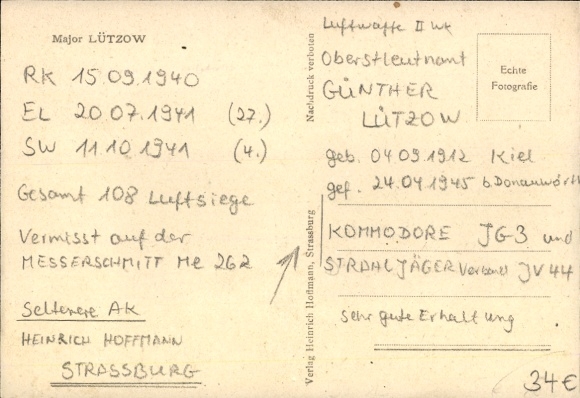 Major LÜTZOW
RK 15.09.1940
EL 20.07.1941 (27.)
SW 11.10.1941 (4.)
Gesamt 108 Luftsiege
Vermisst auf der
MESSERSCHMITT Me 262
Seltenere AK
HEINRICH HOFFMANN
STRASSBURG
Nachdruck verboten
Verlag Heinrich Hoffmann, Strassburg
Luftwaffe II WK
Oberstleutnant
GÜNTHER
LÜTZOW
Echte
Fotografie
geb. 04.09.1912 Kiel
gef. 24.04.1945 b. Donauwörth
KOMMODORE JG3 und
STRAHLJÄGER Verband JV 44
sehr gute Erhaltung
34€